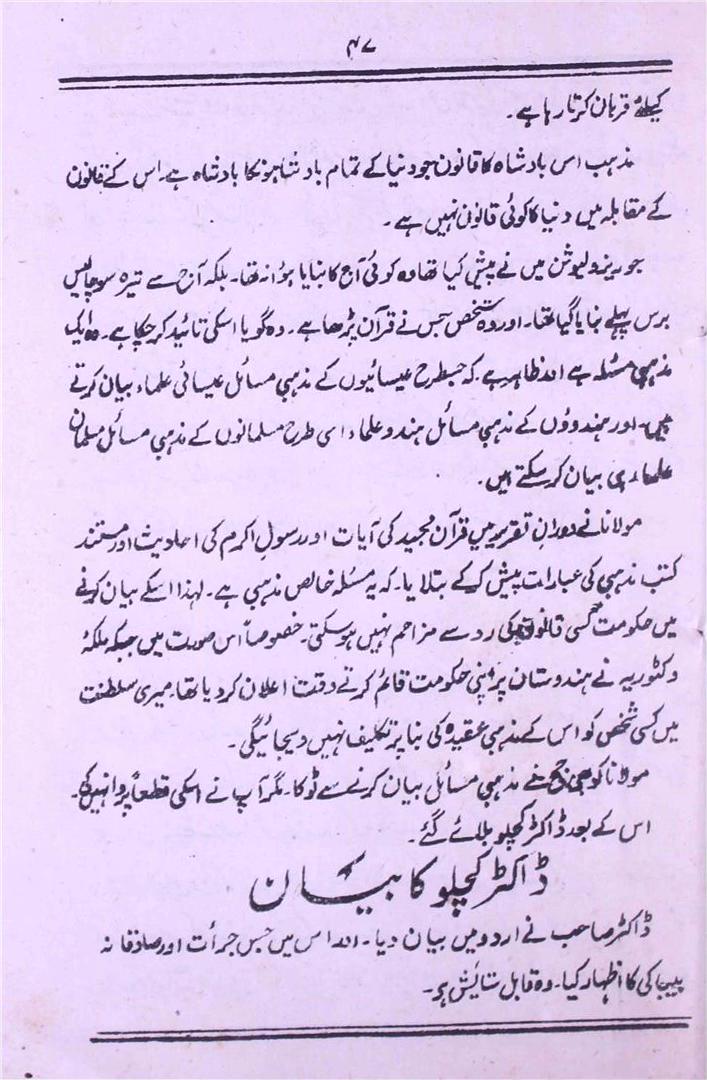 ۴۷
کیلئے قربان کرتا رہا ہے۔
مذہب اس بادشاہ کا قانون جو دنیا کے تمام بادشاہونکا بادشاہ ہے۔ اس کے قانون
کے مقابلہ میں دنیا کا کوئی قانون نہیں ہے۔
جو ریزولیوشن میں نے پیش کیا تھا وہ کوئی آج کا بنایا ہؤا نہ تھا۔ بلکہ آج سے تیرہ سو چالیس
برس پہلے بنایا گیا تھا۔ اور وہ شخص جس نے قرآن پڑھا ہے۔ وہ گویا اسکی تائید کر چکا ہے۔ وہ ایک
مذہبی مسئلہ ہے اور ظاہر ہے کہ جسطرح عیسائیوں کے مذہبی مسائل عیسائی علماء بیان کرتے
ہیں۔ اور ہندوؤں کے مذہبی مسائل ہندو علماء اسی طرح مسلمانوں کے مذہبی مسائل مسلمان
علماء ہی بیان کر سکتے ہیں۔
مولانا نے دوران تقریر میں قرآن مجید کی آیات اور رسول اکرم کی احادیث اور مستند
کتب مذہبی کی عبارات پیش کر کے بتلایا۔ کہ یہ مسئلہ خالص مذہبی ہے۔ لہذا اسکے بیان کرنے
میں حکومت کسی قانون کی رو سے مزاحم نہیں ہو سکتی۔ خصوصاً اس صورت میں جبکہ ملکۂ
وکٹوریہ نے ہندوستان پر اپنی حکومت قائم کرتے وقت اعلان کر دیا تھا۔ میری سلطنت
میں کسی شخص کو اس کے مذہبی عقیدہ کی بنا پر تکلیف نہیں دیجائیگی۔
مولانا کو بھی جج نے مذہبی مسائل بیان کرنے سے ٹوکا۔ مگر آپ نے اسکی قطعاً پروا نہیں کی۔
اس کے بعد ڈاکٹر کچلو بلائے گئے۔
ڈاکٹر کچلو کا بیان
ڈاکٹر صاحب نے اردو میں بیان دیا۔ اور اس میں جس جرأت اور صادقانہ
بیباکی کا اظہار کیا۔ وہ قابل ستایش ہے۔